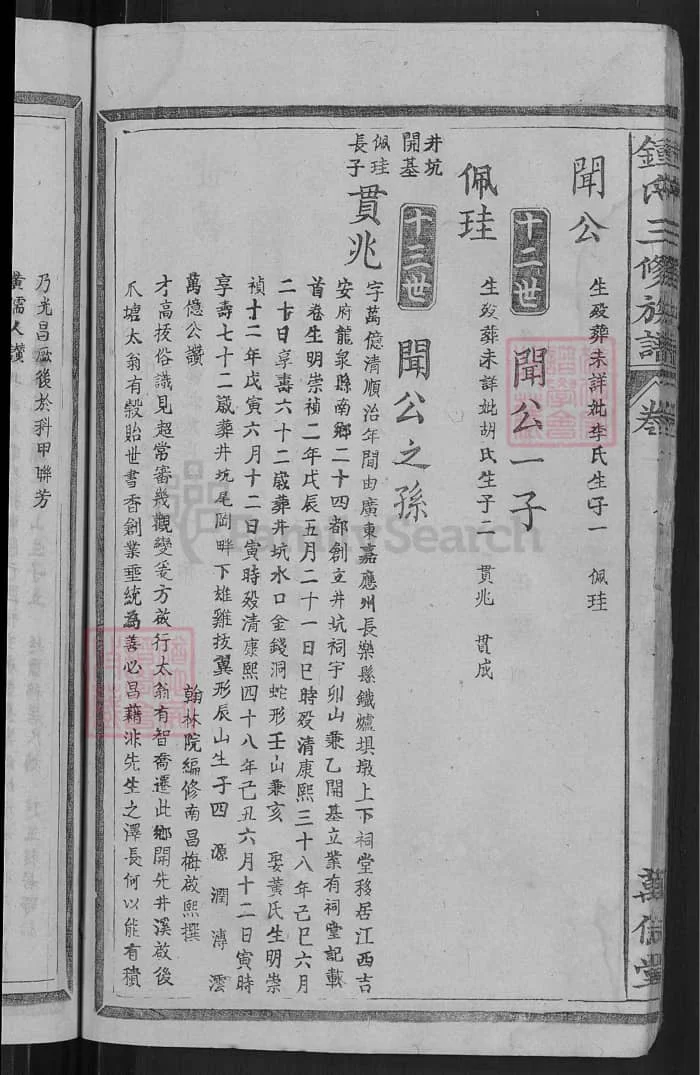 鍾氏三修族譜
卷
萬信堂
聞公
生歿葬未詳妣李氏生子一 佩珪
十二世 聞公一子
佩珪
生歿葬未詳妣胡氏生子二 貫兆 貫成
井坑
開基
十三世 聞公之孫
佩珪
長子
貫兆
字萬億清順治年間由廣東嘉應州長樂縣鐵爐埧墩上下祠堂移居江西吉
安府龍泉縣南鄉二十四都創立井坑祠宇卯山兼乙開基立業有祠堂記載
首卷生明崇禎二年戊辰五月二十一日巳時歿清康熙三十八年己巳六月
二十日享壽六十二歲葬井坑水口金錢洞蛇形壬山兼亥 娶黃氏生明崇
禎十二年戊寅六月十二日寅時歿清康熙四十八年己丑六月十二日寅時
享壽七十二歲葬井坑尾岡畔下雄雞拔翼形辰山生子四 源 潤 溥 澐
萬億公讚 翰林院編修南昌梅啟熙撰
才高拔俗識見超常審幾觀變爰方啟行太翁有智喬遷此鄉開先井溪啟後
爪墟太翁有穀貽世書香創業垂統為善必昌藉非先生之澤長何以能有積
乃光昌厥後於科甲聯芳
黃孺人讚
FamilySearch